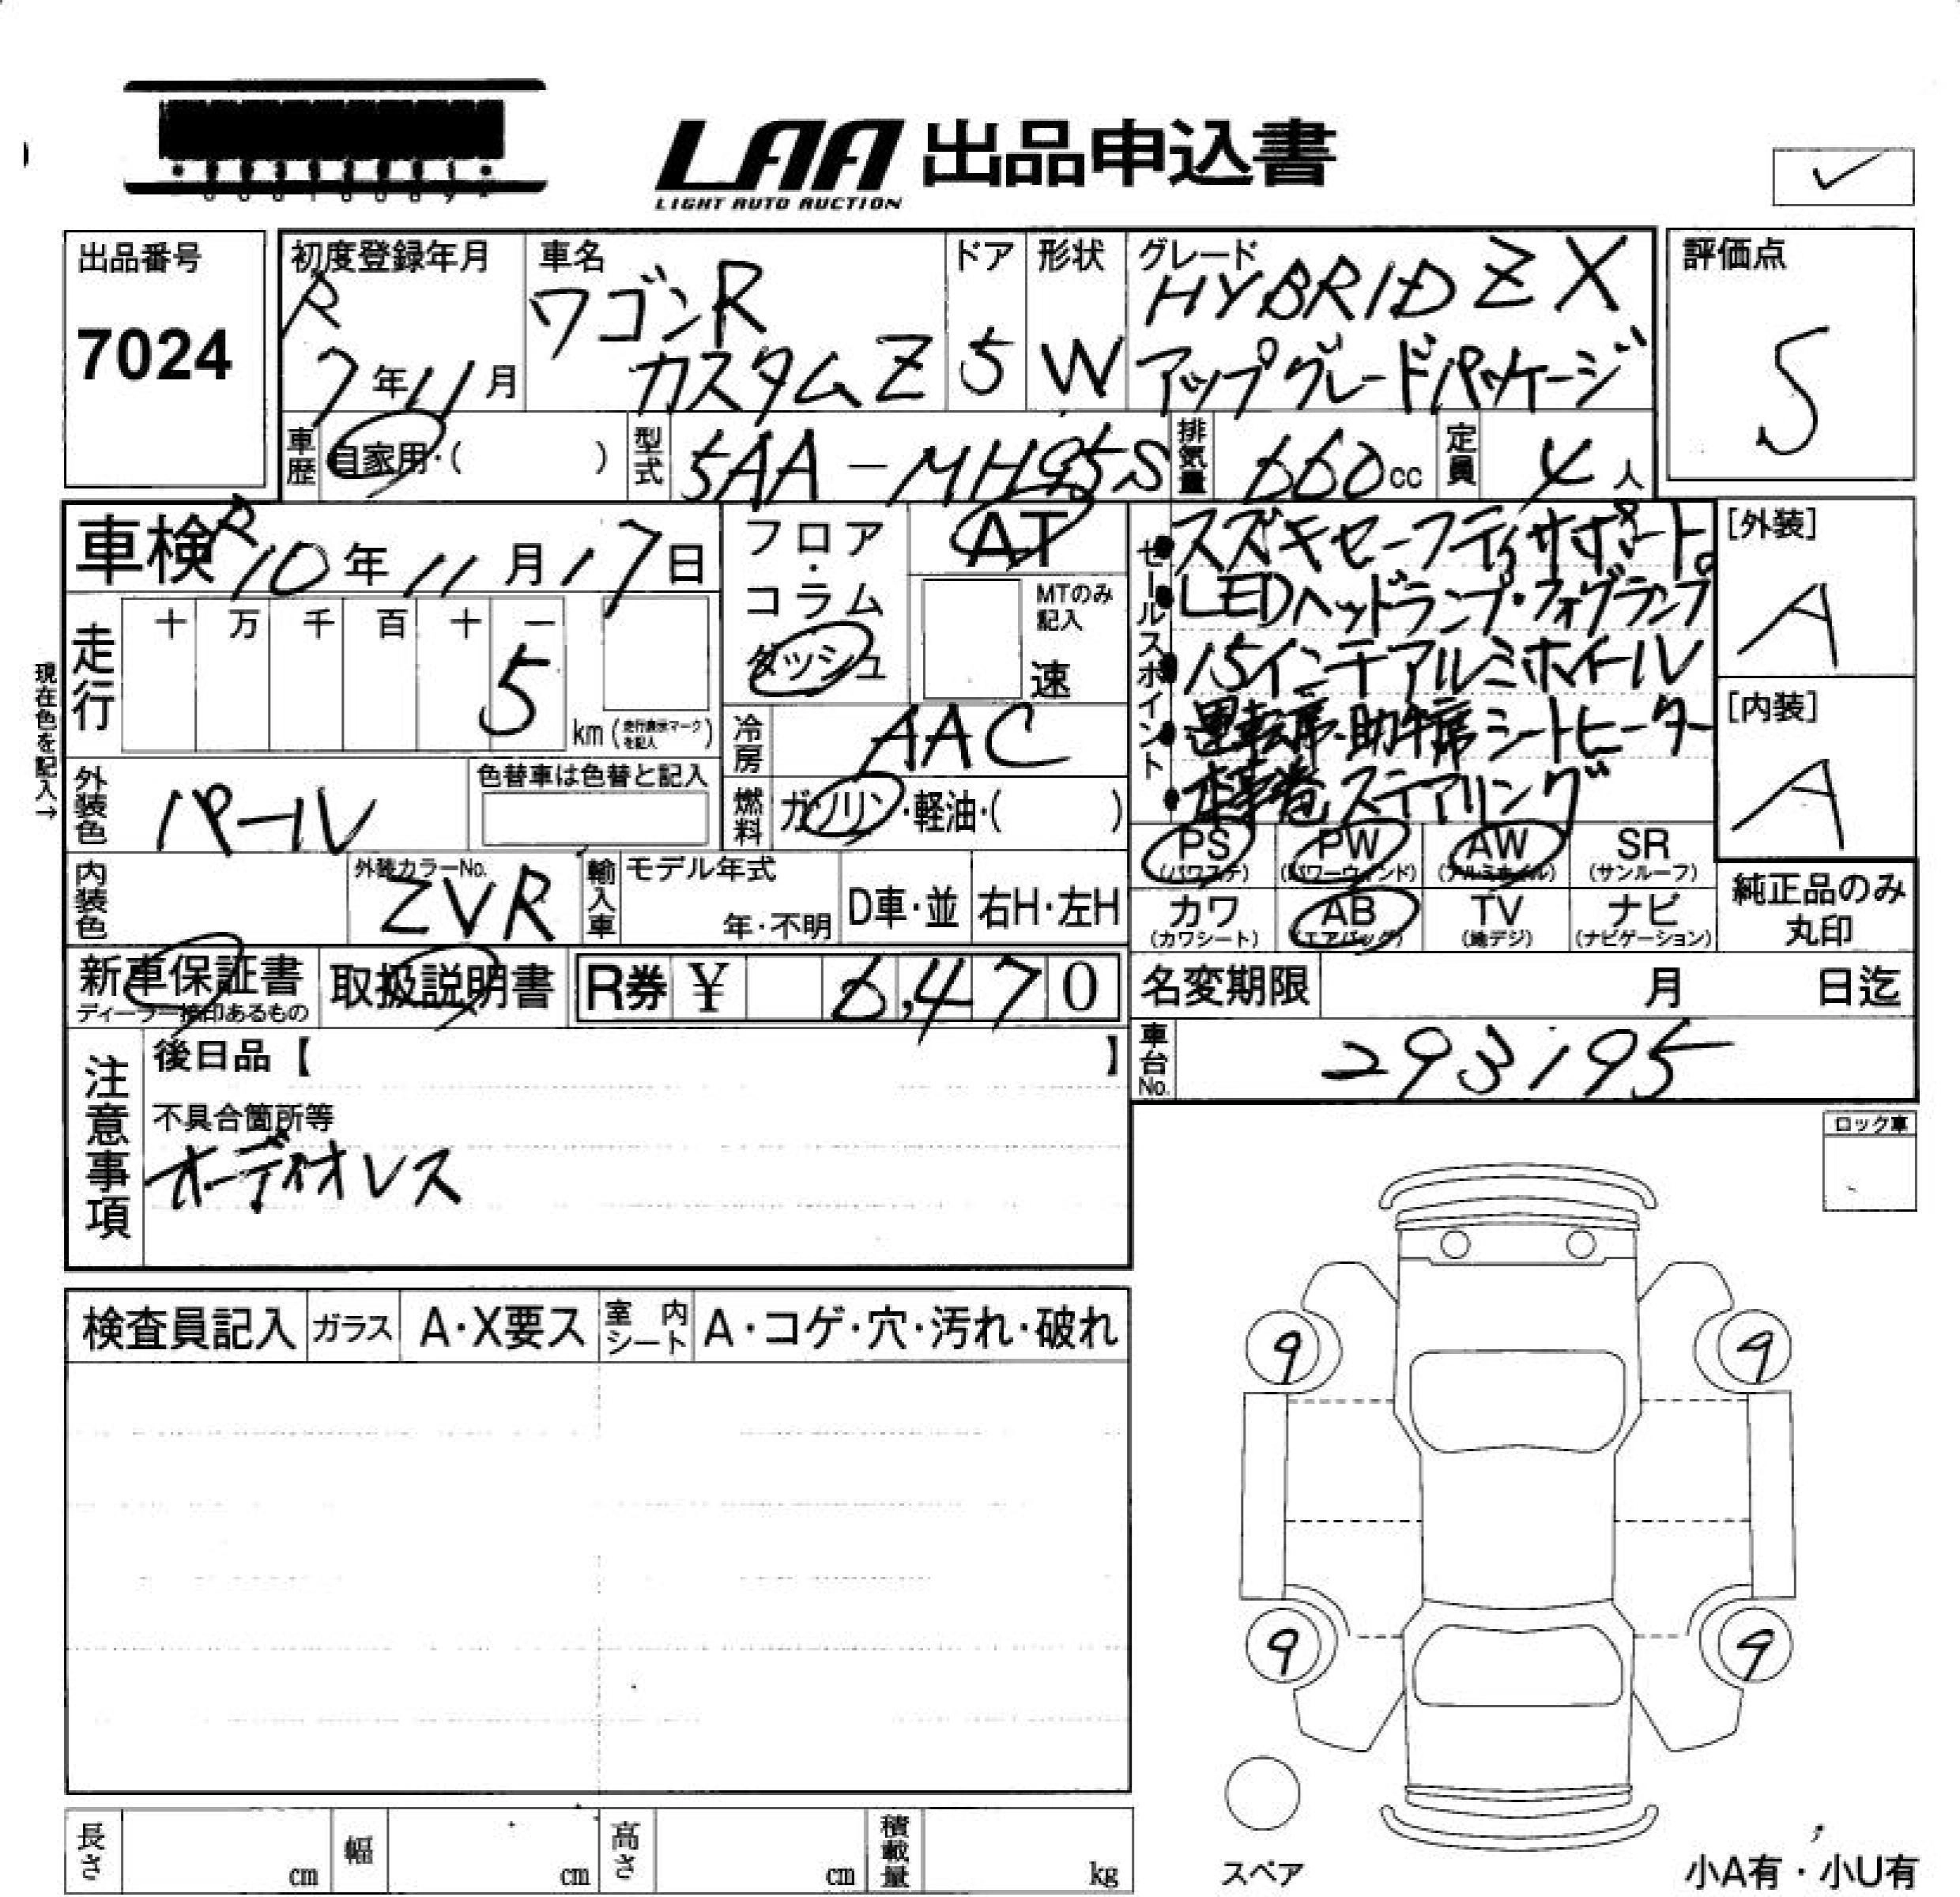 LAA 出品申込書
LIGHT AUTO AUCTION
出品番号
7024
初度登録年月
R
7年11月
車名
ワゴンR
カスタムZ
ドア
5
形状
W
グレード
HYBRID ZX
アップグレードパッケージ
評価点
S
車歴
自家用・( )
型式
5AA-MH95S
排気量
660cc
定員
4人
車検
R10年11月17日
走行
十 万 千 百 十 一
5
km(走行表示マークを記入)
現在色を記入→
フロア・
コラム
ダッシュ
AT
MTのみ
記入
速
冷房
AAC
燃料
ガソリン・軽油・( )
セールスポイント
・スズキセーフティサポート。
・LEDヘッドランプ・フォグランプ
・15インチアルミホイール
・運転席・助手席シートヒーター
・本革巻ステアリング
[外装]
A
[内装]
A
外装色
パール
色替車は色替と記入
内装色
外装カラーNo.
ZVR
輸入車
モデル年式
年・不明
D車・並
右H・左H
PS
(パワステ)
PW
(パワーウィンド)
AW
(アルミホイル)
SR
(サンルーフ)
カワ
(カワシート)
AB
(エアバッグ)
TV
(地デジ)
ナビ
(ナビゲーション)
純正品のみ
丸印
新車保証書
ディーラー捺印あるもの
取扱説明書
R券 ¥ 6,470
名変期限 月 日迄
車台No.
293195
注意事項
後日品【 】
不具合箇所等
オーディオレス
ロック車
検査員記入
ガラス
A・X要ス
室内シート
A・コゲ・穴・汚れ・破れ
9
9
9
9
スペア
小A有・小U有
長さ cm
幅 cm
高さ cm
積載量 kg